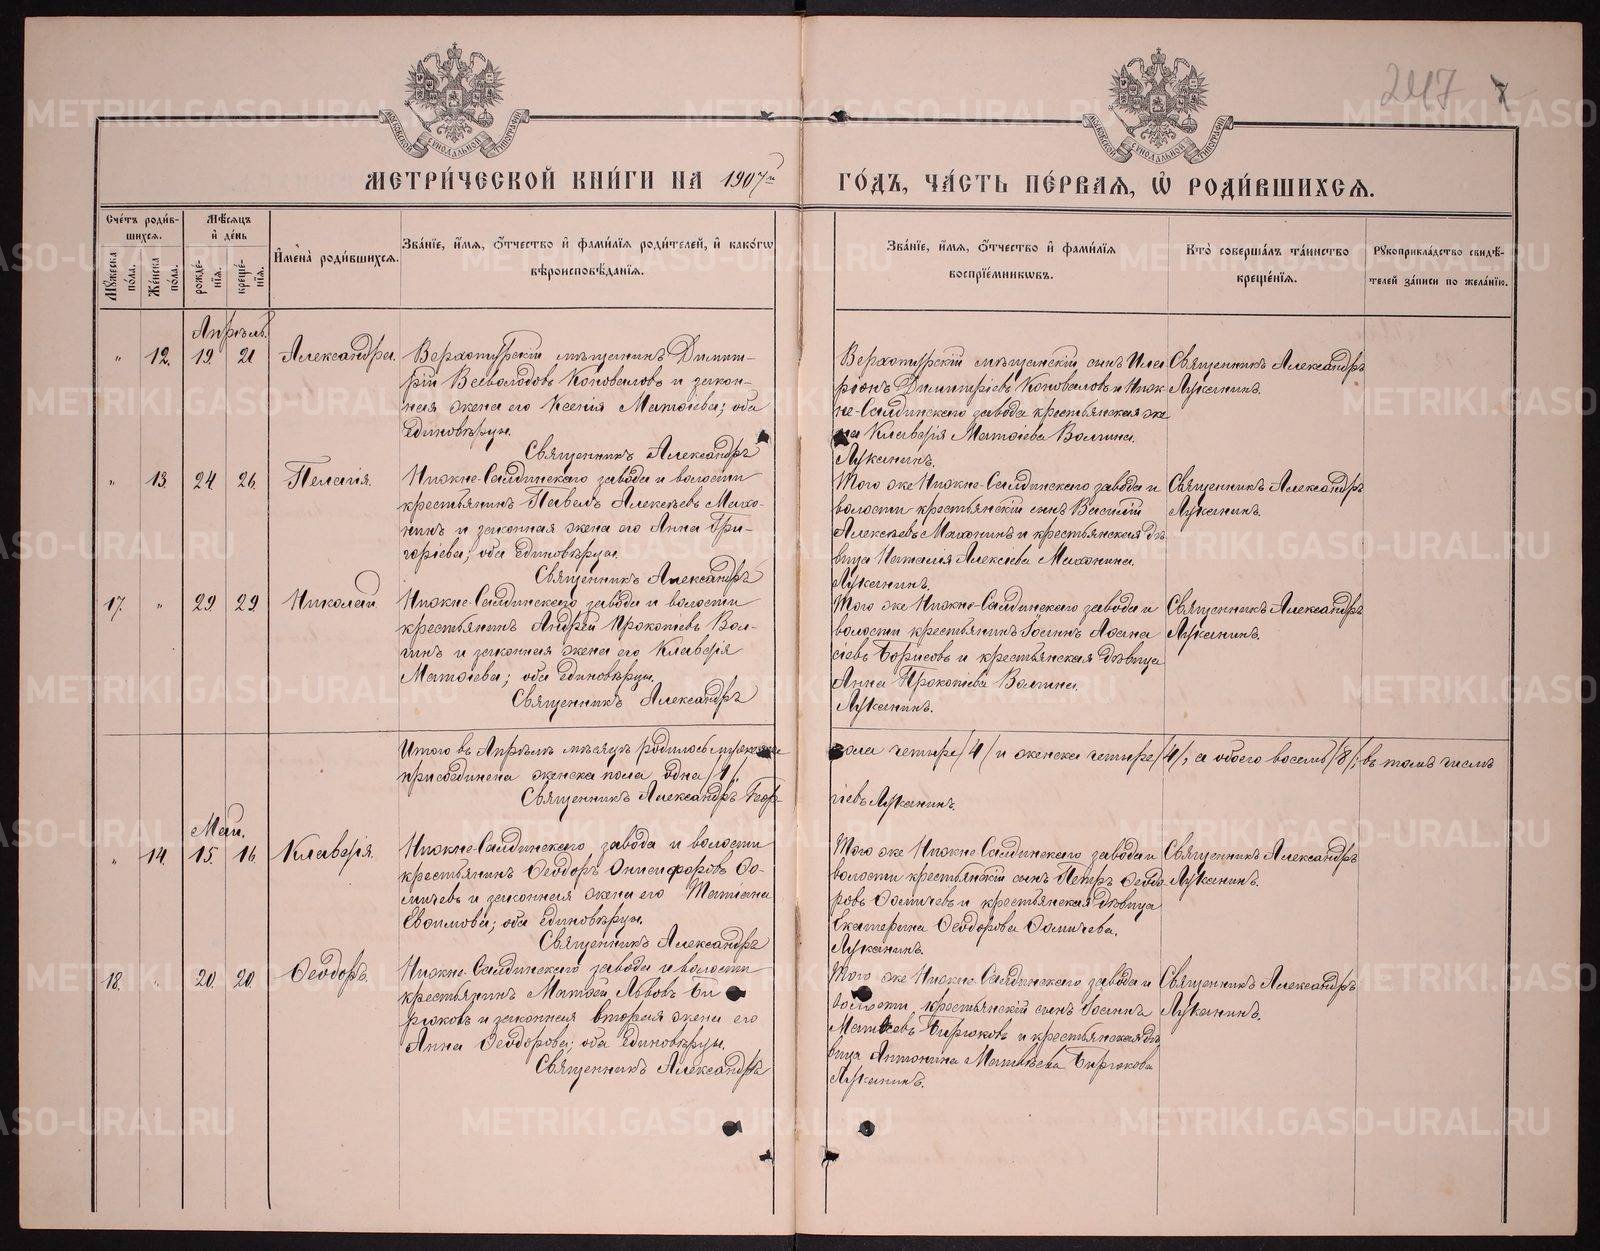 2417
МЕТРИ́ЧЕСКОЙ КНИ́ГИ НА 1907й ГО́ДЪ, ЧА́СТЬ ПЕ́РВАѦ, Ѡ҆ РОДИ́ВШИХСѦ.
Сче́тъ роди́вшихсѧ.
Мꙋ́жеска по́ла.
Же́нска по́ла.
Мѣ́сѧцъ и҆ де́нь
рожде́нїѧ.
креще́нїѧ.
И҆мена̀ роди́вшихсѧ.
Зва́нїе, и҆́мѧ, ѻ҆́тчество и҆ фами́лїѧ роди́телей, и҆ како́гѡ вѣроисповѣ́данїѧ.
Зва́нїе, и҆́мѧ, ѻ҆́тчество и҆ фами́лїѧ воспрїе́мникѡвъ.
Кто̀ соверша́лъ та́инство креще́нїѧ.
Рꙋкоприкла́дство свидѣ́телей за́писи по жела́нїю.
Апрѣль.
" 12. 19 21 Александра.
Верхотурскій мѣщанинъ Димит-
рій Всеволодовъ Коноваловъ и закон-
ная жена его Ксенія Матѳіева; оба
единовѣрцы.
Священникъ Александръ
Верхотурскій мѣщанскій сынъ Ила-
ріонъ Димитріевъ Коноваловъ и Ниж-
не-Салдинскаго завода крестьянская же-
на Клавдія Матѳіева Волгина.
Луканинъ.
Священникъ Александръ
Луканинъ.
" 13. 24 26 Пелагія.
Нижне-Салдинскаго завода и волости
крестьянинъ Павелъ Алексѣевъ Махо-
нинъ и законная жена его Анна Гри-
горіева; оба единовѣрцы.
Священникъ Александръ
Того же Нижне-Салдинскаго завода и
волости крестьянскій сынъ Василій
Алексѣевъ Махонинъ и крестьянская дѣ-
вица Наталія Алексіева Махонина.
Луканинъ.
Священникъ Александръ
Луканинъ.
17. " 29 29 Николай.
Нижне-Салдинскаго завода и волости
крестьянинъ Андрей Прокопіевъ Вол-
гинъ и законная жена его Клавдія
Матѳіева; оба единовѣрцы.
Священникъ Александръ
Того же Нижне-Салдинскаго завода и
волости крестьянинъ Іоаннъ Аѳана-
сіевъ Борисовъ и крестьянская дѣвица
Анна Прокопіева Волгина.
Луканинъ.
Священникъ Александръ
Луканинъ.
Итого въ Апрѣлѣ мѣсяцѣ родилось мужеска пола четыре /4/ и женска четыре /4/, а обоего восемь /8/; въ томъ числѣ
присоединена женска пола одна /1/.
Священникъ Александръ Геор-
гіевъ Луканинъ.
Май.
" 14. 15. 16. Клавдія.
Нижне-Салдинскаго завода и волости
крестьянинъ Ѳеодоръ Онисифоровъ Ѳо-
мичевъ и законная жена его Татіана
Евѳимова; оба единовѣрцы.
Священникъ Александръ
Того же Нижне-Салдинскаго завода и
волости крестьянскій сынъ Петръ Ѳеодо-
ровъ Ѳомичевъ и крестьянская дѣвица
Екатерина Ѳеодорова Ѳомичева.
Луканинъ.
Священникъ Александръ
Луканинъ.
18. " 20. 20. Ѳеодоръ.
Нижне-Салдинскаго завода и волости
крестьянинъ Матѳей Львовъ Би-
рюковъ и законная вторая жена его
Анна Ѳеодорова; оба единовѣрцы.
Священникъ Александръ
Того же Нижне-Салдинскаго завода и
волости, крестьянскій сынъ Іоаннъ
Матѳеевъ Бирюковъ и крестьянская дѣ-
вица Антонина Матѳеева Бирюкова
Луканинъ.
Священникъ Александръ
Луканинъ.
METRIKI.GASO-URAL.RU